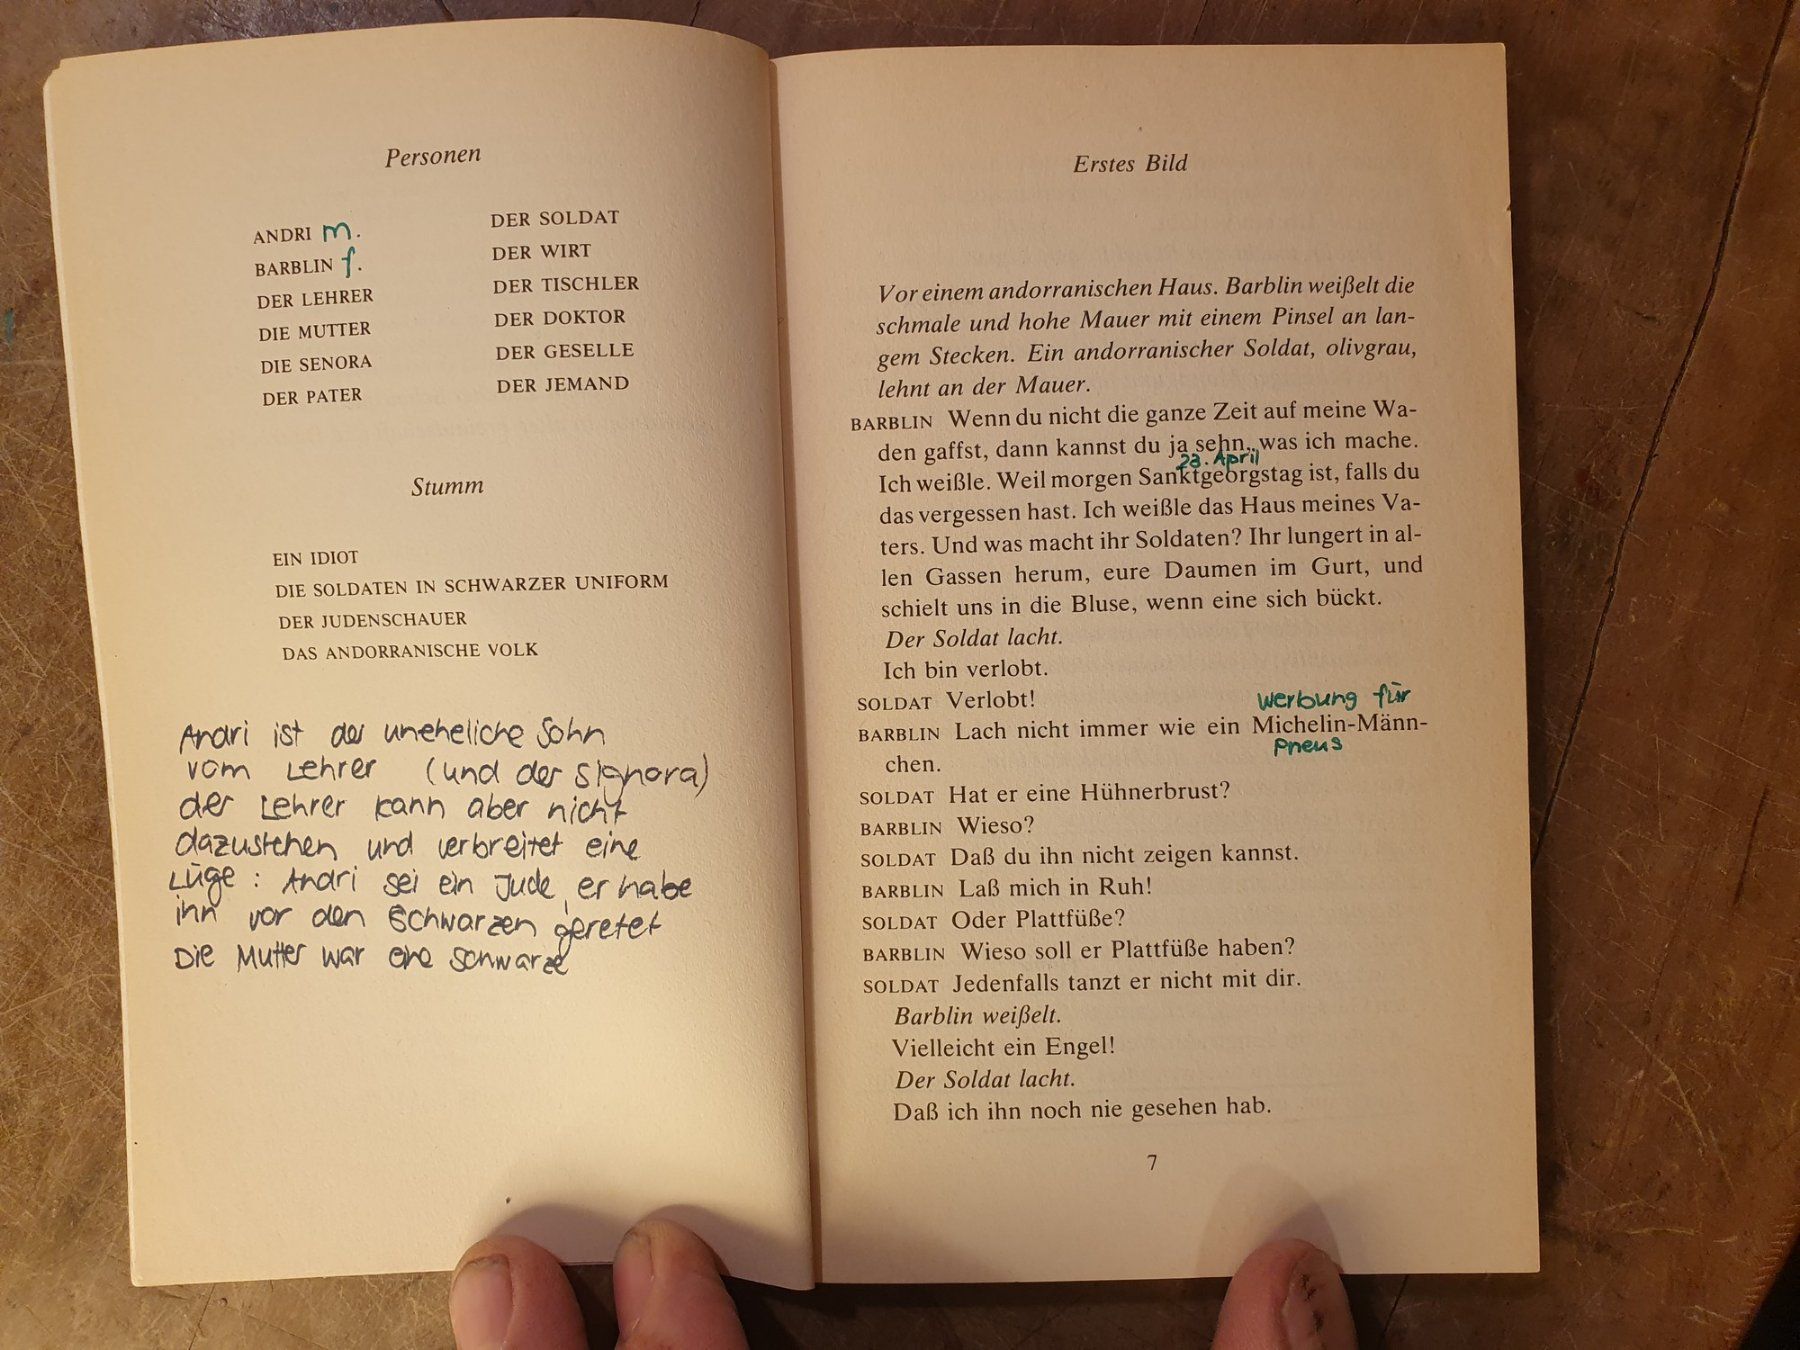 Personen
ANDRI m.
BARBLIN f.
DER LEHRER
DIE MUTTER
DIE SENORA
DER PATER
DER SOLDAT
DER WIRT
DER TISCHLER
DER DOKTOR
DER GESELLE
DER JEMAND
Stumm
EIN IDIOT
DIE SOLDATEN IN SCHWARZER UNIFORM
DER JUDENSCHAUER
DAS ANDORRANISCHE VOLK
Andri ist der uneheliche Sohn
vom Lehrer (und der Signora)
der Lehrer kann aber nicht
dazustehen und verbreitet eine
Lüge: Andri sei ein Jude, er habe
ihn vor den Schwarzen geretet
Die Mutter war eine schwarze
Erstes Bild
Vor einem andorranischen Haus. Barblin weißelt die
schmale und hohe Mauer mit einem Pinsel an lan-
gem Stecken. Ein andorranischer Soldat, olivgrau,
lehnt an der Mauer.
BARBLIN Wenn du nicht die ganze Zeit auf meine Wa-
den gaffst, dann kannst du ja sehn, was ich mache.
23. April
Ich weißle. Weil morgen Sanktgeorgstag ist, falls du
das vergessen hast. Ich weißle das Haus meines Va-
ters. Und was macht ihr Soldaten? Ihr lungert in al-
len Gassen herum, eure Daumen im Gurt, und
schielt uns in die Bluse, wenn eine sich bückt.
Der Soldat lacht.
Ich bin verlobt.
SOLDAT Verlobt!
Werbung für
BARBLIN Lach nicht immer wie ein Michelin-Männ-
Pneus
chen.
SOLDAT Hat er eine Hühnerbrust?
BARBLIN Wieso?
SOLDAT Daß du ihn nicht zeigen kannst.
BARBLIN Laß mich in Ruh!
SOLDAT Oder Plattfüße?
BARBLIN Wieso soll er Plattfüße haben?
SOLDAT Jedenfalls tanzt er nicht mit dir.
Barblin weißelt.
Vielleicht ein Engel!
Der Soldat lacht.
Daß ich ihn noch nie gesehen hab.
7